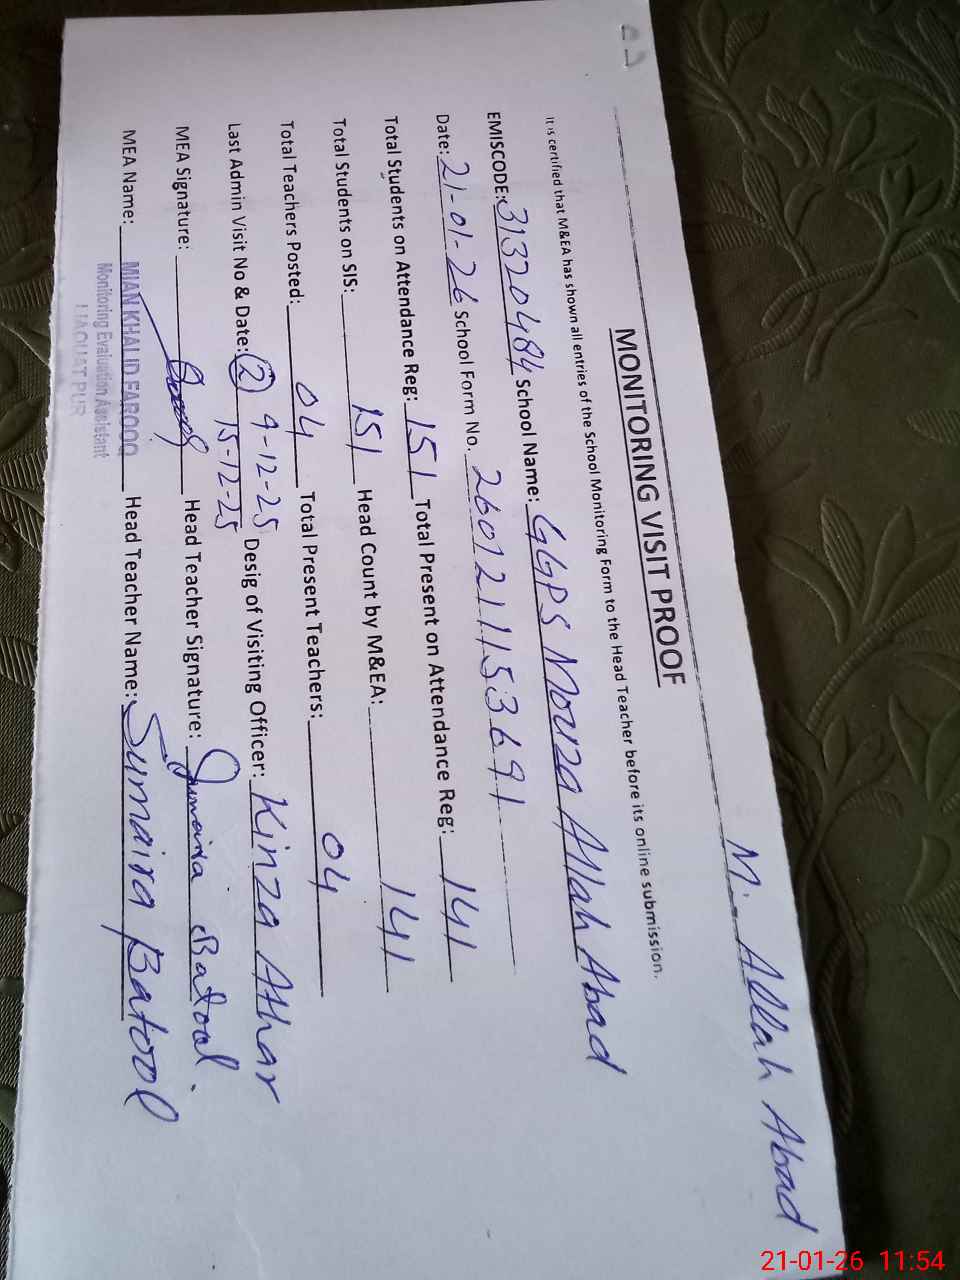 M. Allah Abad
MONITORING VISIT PROOF
It is certified that M&EA has shown all entries of the School Monitoring Form to the Head Teacher before its online submission.
EMISCODE: 31320484 School Name: GGPS Mouza Allah Abad
Date: 21-01-26 School Form No. 2601211153691
Total Students on Attendance Reg: 151 Total Present on Attendance Reg: 141
Total Students on SIS: 151 Head Count by M&EA: 141
Total Teachers Posted: 04 Total Present Teachers: 04
Last Admin Visit No & Date: (2) 9-12-25 Desig of Visiting Officer: Kinza Athar
15-12-25
MEA Signature: Head Teacher Signature: Sumaira Batool.
MEA Name: MIAN KHALID FAROOQ Head Teacher Name: Sumaira Batool
Monitoring Evaluation Assistant
LIAQUAT PUR
21-01-26 11:54